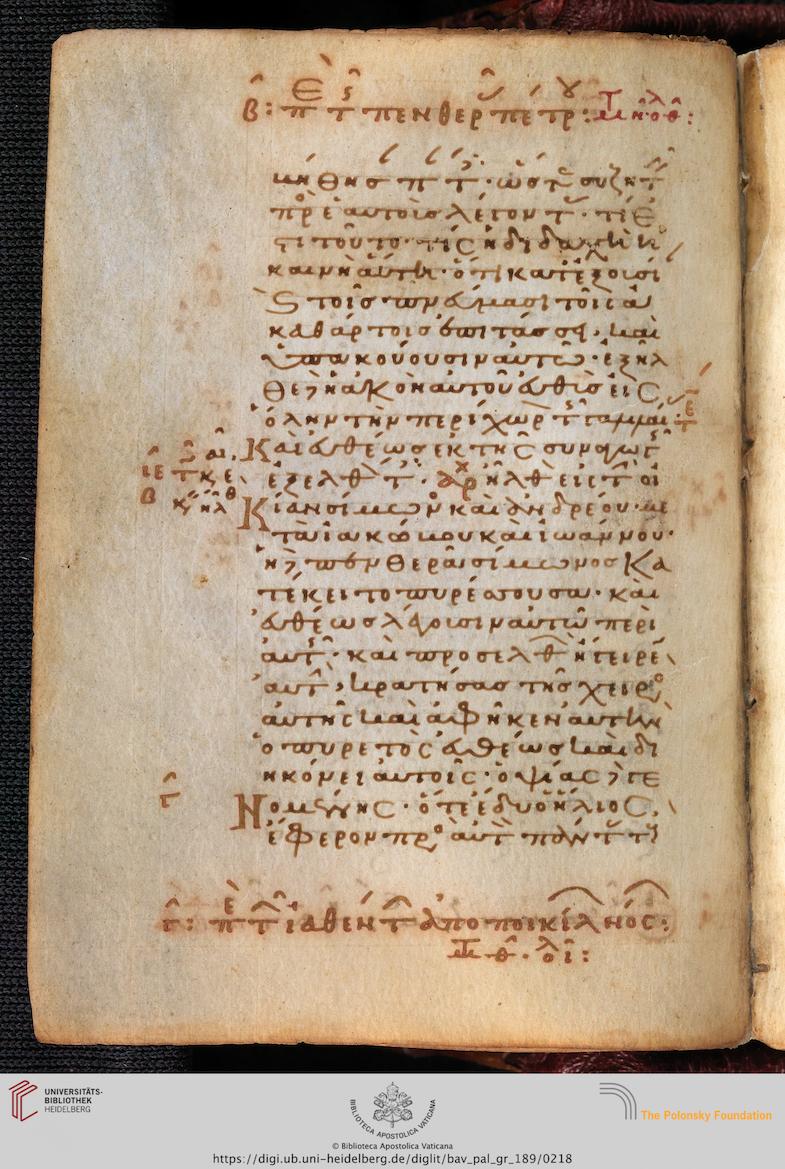 β: πε τς πενθερ πέτρου:
πρ ἑαυτοισ λέγοντ · τί ἐ
στι τοῦτο · τίς ἡ διδαχὴ ἡ
καινὴ αὐτη · ὅτι κατ ἐξουσί
τοῖς πνεύμασι τοῖς ἀ
καθάρτοις ἐπιτάσσει · καὶ
ὑπακούουσιν αὐτῶ · ἐξῆλ
θε δὲ ἡ ἀκοὴ αὐτοῦ εὐθὺς εἰς
ὅλην τὴν περίχωρ τς γαλιλαί ·
Καὶ εὐθέως ἐκ τῆς συναγωγ
ἐξελθτ · ἀρχ ἦλθ εἰς τ οἰ
Κίαν σίμωνος καὶ ἀνδρέου · με
τὰ ἰακώβου καὶ ἰωάννου ·
ἡ δὲ πενθερὰ σίμωνος κα
τέκειτο πυρέσσουσα · καὶ
εὐθέως λέγουσιν αὐτῶ περὶ
αὐτς · καὶ προσελθ ἤγειρε
αὐτ, κρατήσας τῆς χειρο
αὐτῆς καὶ ἀφῆκεν αὐτὴν
ὁ πυρετὸς εὐθέως καὶ δι
ηκόνει αὐτοῖς · ὀψίας δὲ γε
Νομένης · ὅτε ἔδυ ὁ ἥλιος
ἔφερον πρὸ αὐτ πάντ τ
γ: πε τ ἰαθέντ ἀπὸ ποικίλ νόσ:
UNIVERSITÄTS-
BIBLIOTHEK
HEIDELBERG
BIBLIOTECA APOSTOLICA VATICANA
The Polonsky Foundation
© Biblioteca Apostolica Vaticana
https://digi.ub.uni-heidelberg.de/diglit/bav_pal_gr_189/0218